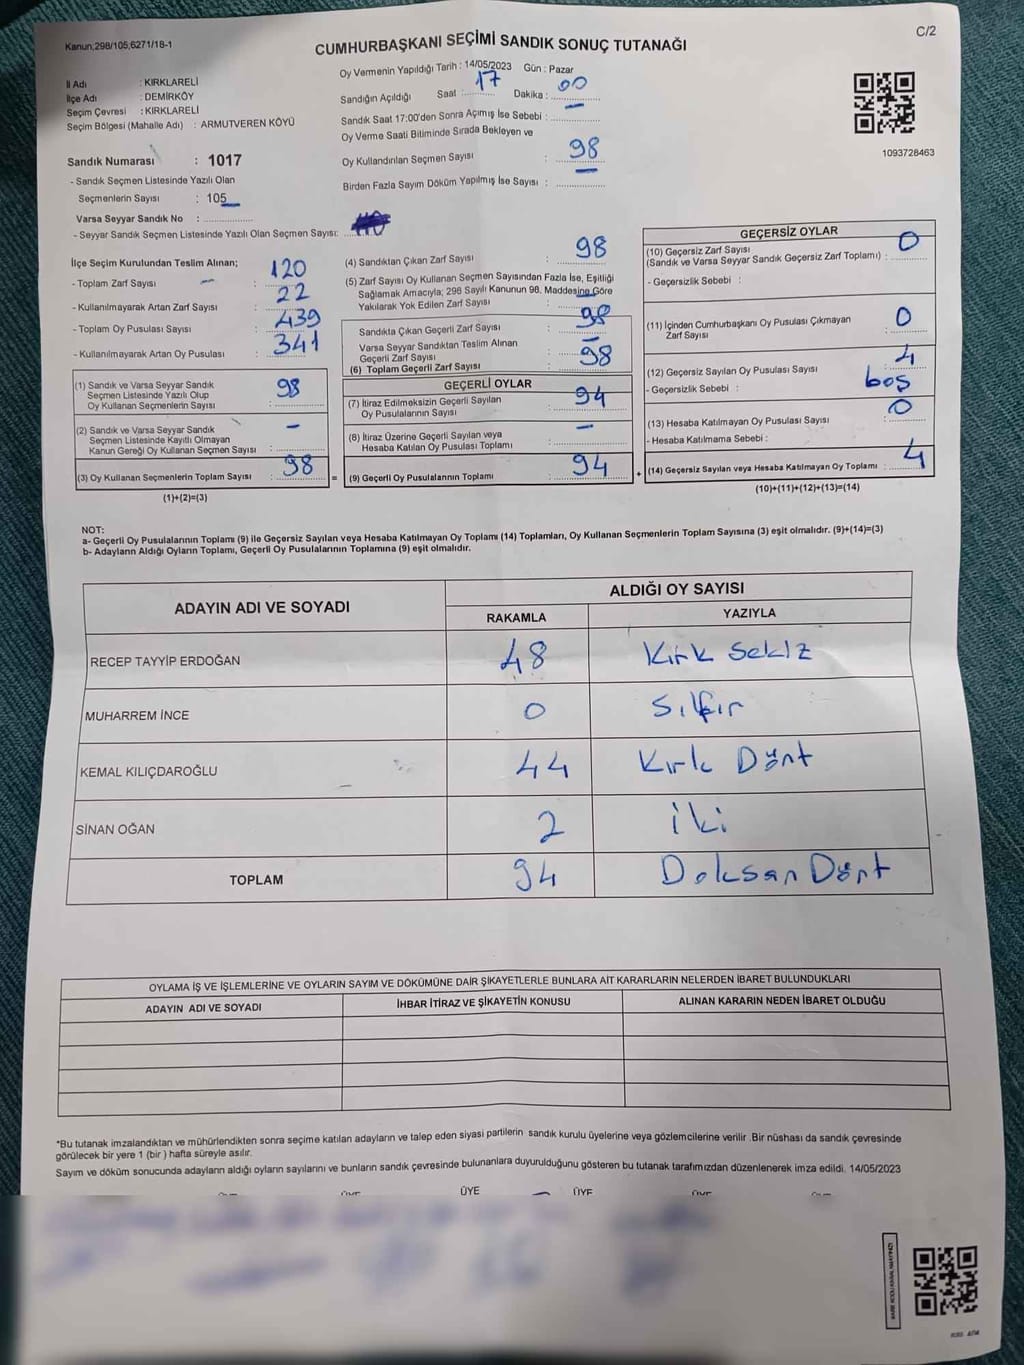 Kanun;298/105;6271/18-1
C/2
CUMHURBAŞKANI SEÇİMİ SANDIK SONUÇ TUTANAĞI
İl Adı : KIRKLARELİ
İlçe Adı : DEMİRKÖY
Seçim Çevresi : KIRKLARELİ
Seçim Bölgesi (Mahalle Adı) : ARMUTVEREN KÖYÜ
Sandık Numarası : 1017
- Sandık Seçmen Listesinde Yazılı Olan
Seçmenlerin Sayısı : 105
Varsa Seyyar Sandık No : ..............
- Seyyar Sandık Seçmen Listesinde Yazılı Olan Seçmen Sayısı:
Oy Vermenin Yapıldığı Tarih : 14/05/2023 Gün : Pazar
Sandığın Açıldığı Saat : 17 Dakika : 00
Sandık Saat 17:00'den Sonra Açımış İse Sebebi : —
Oy Verme Saati Bitiminde Sırada Bekleyen ve
Oy Kullandırılan Seçmen Sayısı : 98
Birden Fazla Sayım Döküm Yapılmış İse Sayısı : —
1093728463
İlçe Seçim Kurulundan Teslim Alınan;
- Toplam Zarf Sayısı : 120
- Kullanılmayarak Artan Zarf Sayısı : 22
- Toplam Oy Pusulası Sayısı : 439
- Kullanılmayarak Artan Oy Pusulası : 341
(1) Sandık ve Varsa Seyyar Sandık
Seçmen Listesinde Yazılı Olup
Oy Kullanan Seçmenlerin Sayısı : 98
(2) Sandık ve Varsa Seyyar Sandık
Seçmen Listesinde Kayıtlı Olmayan
Kanun Gereği Oy Kullanan Seçmen Sayısı : —
(3) Oy Kullanan Seçmenlerin Toplam Sayısı : 98
(1)+(2)=(3)
=
(4) Sandıktan Çıkan Zarf Sayısı : 98
(5) Zarf Sayısı Oy Kullanan Seçmen Sayısından Fazla İse, Eşitliği
Sağlamak Amacıyla; 298 Sayılı Kanunun 98. Maddesine Göre
Yakılarak Yok Edilen Zarf Sayısı : —
Sandıkta Çıkan Geçerli Zarf Sayısı : 98
Varsa Seyyar Sandıktan Teslim Alınan
Geçerli Zarf Sayısı : —
(6) Toplam Geçerli Zarf Sayısı : 98
GEÇERLİ OYLAR
(7) İtiraz Edilmeksizin Geçerli Sayılan
Oy Pusulalarının Sayısı : 94
(8) İtiraz Üzerine Geçerli Sayılan veya
Hesaba Katılan Oy Pusulası Toplamı : —
(9) Geçerli Oy Pusulalarının Toplamı : 94
+
GEÇERSİZ OYLAR
(10) Geçersiz Zarf Sayısı
(Sandık ve Varsa Seyyar Sandık Geçersiz Zarf Toplamı) : 0
- Geçersizlik Sebebi :
(11) İçinden Cumhurbaşkanı Oy Pusulası Çıkmayan
Zarf Sayısı : 0
(12) Geçersiz Sayılan Oy Pusulası Sayısı : 4
- Geçersizlik Sebebi : boş
(13) Hesaba Katılmayan Oy Pusulası Sayısı : 0
- Hesaba Katılmama Sebebi :
(14) Geçersiz Sayılan veya Hesaba Katılmayan Oy Toplamı : 4
(10)+(11)+(12)+(13)=(14)
NOT:
a- Geçerli Oy Pusulalarının Toplamı (9) ile Geçersiz Sayılan veya Hesaba Katılmayan Oy Toplamı (14) Toplamları, Oy Kullanan Seçmenlerin Toplam Sayısına (3) eşit olmalıdır. (9)+(14)=(3)
b- Adayların Aldığı Oyların Toplamı, Geçerli Oy Pusulalarının Toplamına (9) eşit olmalıdır.
ADAYIN ADI VE SOYADI ALDIĞI OY SAYISI
RAKAMLA YAZIYLA
RECEP TAYYİP ERDOĞAN 48 Kırk Sekiz
MUHARREM İNCE 0 Sıfır
KEMAL KILIÇDAROĞLU 44 Kırk Dört
SİNAN OĞAN 2 İki
TOPLAM 94 Doksan Dört
OYLAMA İŞ VE İŞLEMLERİNE VE OYLARIN SAYIM VE DÖKÜMÜNE DAİR ŞİKAYETLERLE BUNLARA AİT KARARLARIN NELERDEN İBARET BULUNDUKLARI
ADAYIN ADI VE SOYADI İHBAR İTİRAZ VE ŞİKAYETİN KONUSU ALINAN KARARIN NEDEN İBARET OLDUĞU
*Bu tutanak imzalandıktan ve mühürlendikten sonra seçime katılan adayların ve talep eden siyasi partilerin sandık kurulu üyelerine veya gözlemcilerine verilir .Bir nüshası da sandık çevresinde
görülecek bir yere 1 (bir ) hafta süreyle asılır.
Sayım ve döküm sonucunda adayların aldığı oyların sayılarını ve bunların sandık çevresinde bulunanlara duyurulduğunu gösteren bu tutanak tarafımızdan düzenlenerek imza edildi. 14/05/2023
ÜYE ÜYE